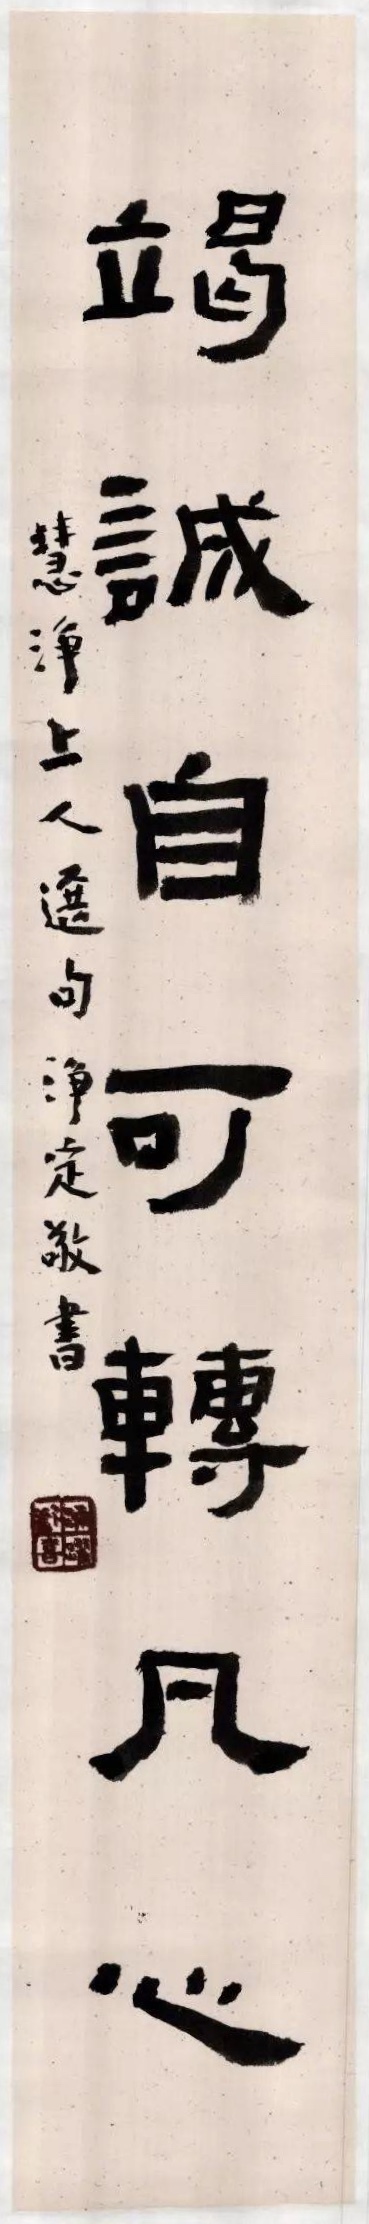 竭誠自可轉凡心
慧淨上人選句 淨定敬書